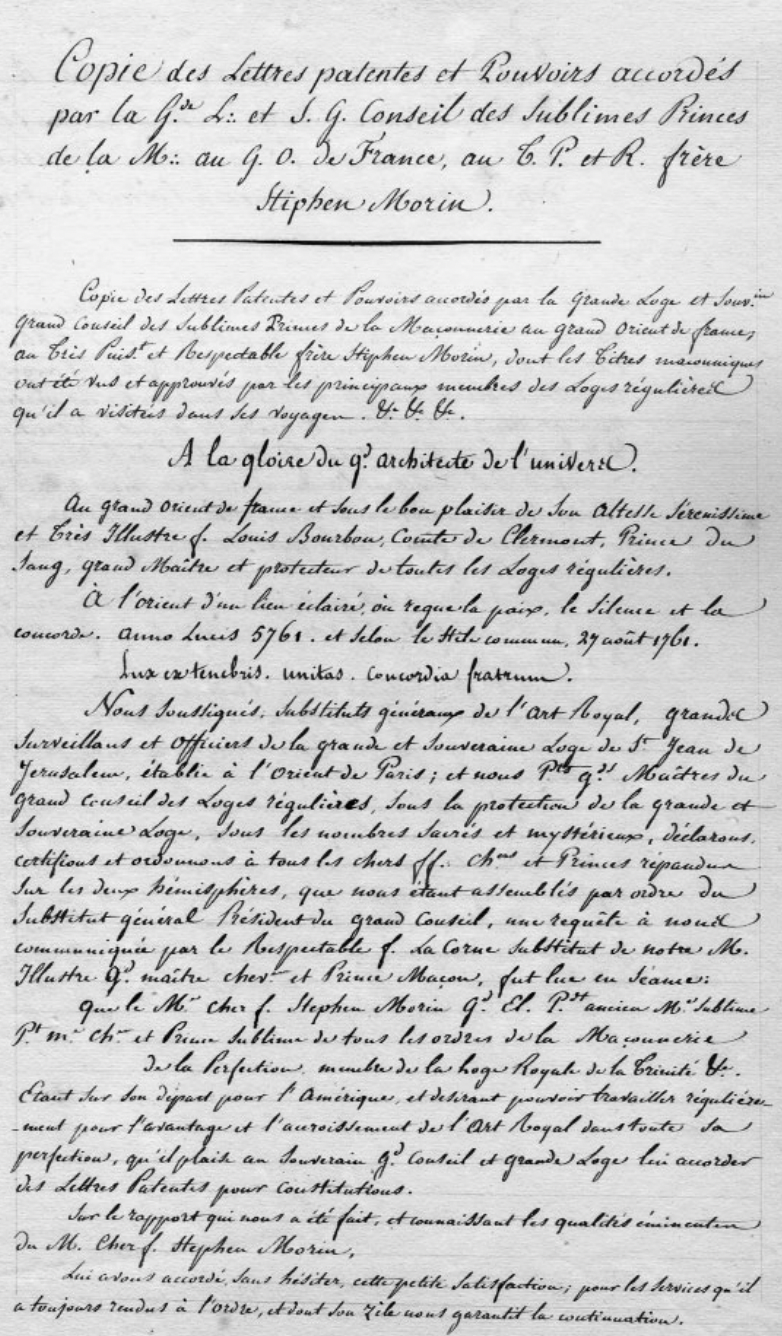 Copie des Lettres patentes et Pouvoirs accordés
par la G.de L: et S. G. Conseil des Sublimes Princes
de la M:. au G. O. de France, au T. P. et R. frère
Stiphen Morin.
Copie des Lettres Patentes et Pouvoirs accordés par la Grande Loge et Souv.in
Grand Conseil des Sublimes Princes de la Maçonnerie au grand Orient de france;
au Très Puis.t et Respectable frère Stiphen Morin, dont les Titres maconniques
ont été vus et approuvés par les principaux membres des Loges régulières
qu'il a visitées dans ses voyages. &c &c &c.
A la gloire du g.d architecte de l'univers.
Au grand Orient de france et sous le bon plaisir de Son Altesse Sérénissime
et Très Illustre f. Louis Bourbon, Comte de Clermont, Prince du
Sang, grand Maître et protecteur de toutes les Loges régulières.
À l'orient d'un lieu éclairé, où regne la paix, le Silence et la
concorde. anno Lucis 5761. et Selon le Stile commun, 27 août 1761.
Lux ex tenebris. unitas. concordia fratrum.
Nous Soussignés, Substituts généraux de l'Art Royal, grands
Surveillans et Officiers de la grande et Souveraine Loge de St Jean de
Jerusalem, établie à l'Orient de Paris; et nous P.ts g.ds Maîtres du
grand Conseil des Loges régulières, Sous la protection de la grande et
Souveraine Loge, Sous les nombres Sacrés et mystérieux, déclarons,
certifions et ordonnons à tous les chers ff. Ch.ers et Princes répandus
Sur les deux hémisphères, que nous étant assemblés par ordre du
Substitut général Président du grand Conseil, une requête à nous
communiquée par le Respectable f. La Corne Substitut de notre M.
Illustre G.d maître chev.r et Prince Maçon, fut lue en Séance:
que le M.r Cher f. Stephen Morin G.d El. P.it ancien M.r Sublime
P.t m.r Ch.r et Prince Sublime de tous les ordres de la Maçonnerie
de la Perfection, membre de la Loge Royale de la Trinité &c.
Etant Sur Son départ pour l'Amérique, et desirant pouvoir travailler régulière-
-ment pour l'avantage et l'accroissement de l'Art Royal dans toute Sa
perfection, qu'il plaise au Souverain G.d Conseil et grande Loge lui accorder
des Lettres Patentes pour constitutions.
Sur le rapport qui nous a été fait, et connaissant les qualités éminentes
du M. Cher f. Stephen Morin,
Lui avons accordé, Sans hésiter, cette petite Satisfaction; pour les Services qu'il
a toujours rendus à l'Ordre, et dont Son Zèle nous garantit la continuation.